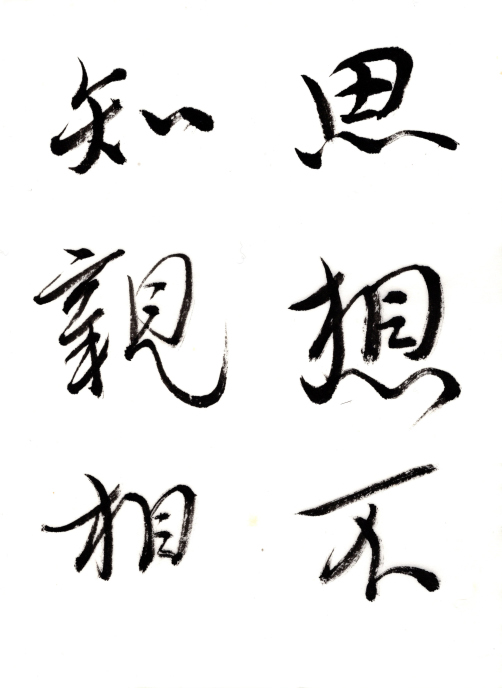 思想不
知親相